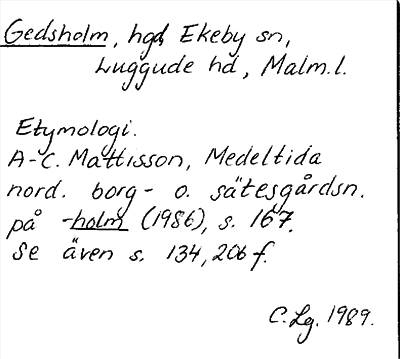 Gedsholm, hgd, Ekeby sn,
Luggude hd, Malm.l.
Etymologi.
A-C. Mattisson, Medeltida
nord. borg- o. sätesgårdsn.
på -holm (1986), s. 167.
Se även s. 134, 206 f.
C. Lg. 1989.